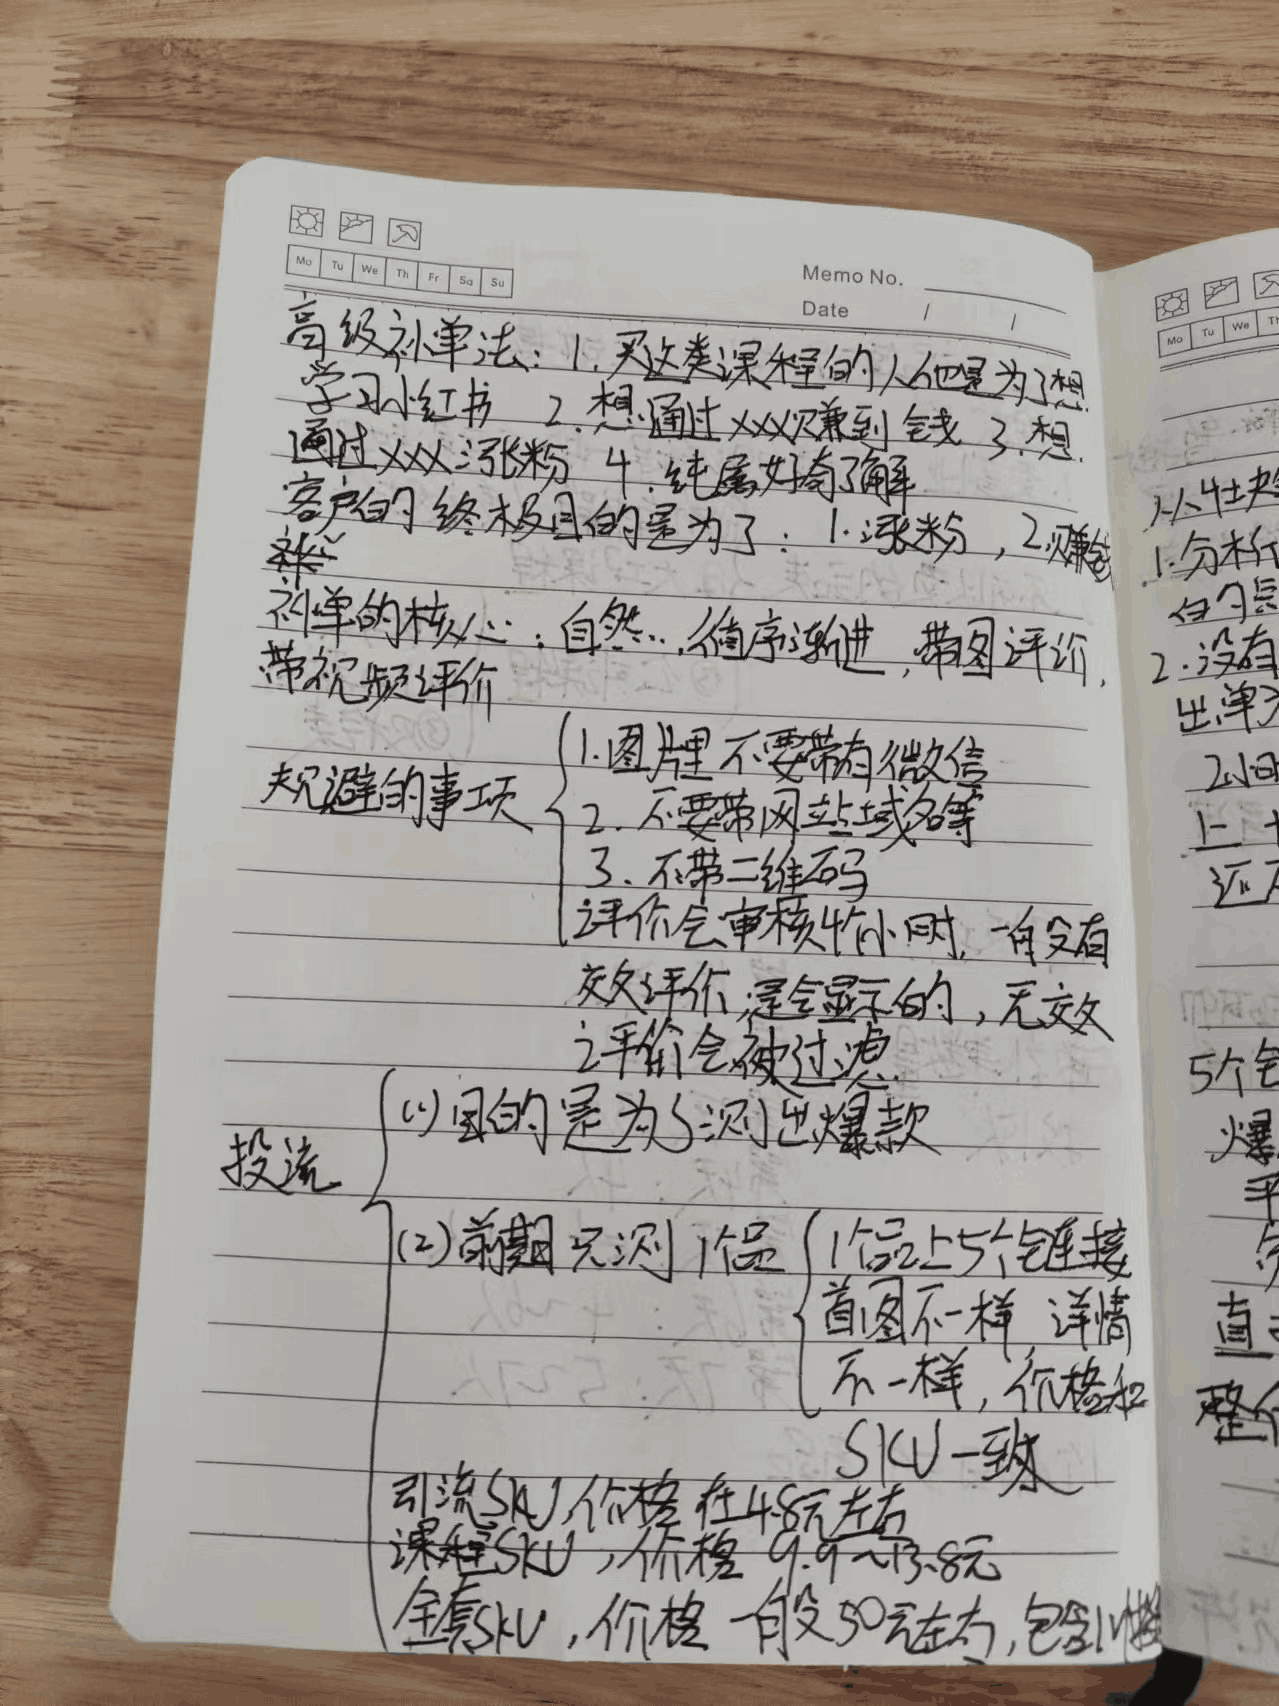 Mo Tu We Th Fr Sa Su
Memo No.
Date / /
高级补单法：1.买这类课程的人他是为了想
学习小红书 2.想通过xxx赚到钱 3.想
通过xxx涨粉 4.纯属好奇了解
客户的终极目的是为了：1.涨粉，2.赚钱
补单的核心：自然，循序渐进，带图评价，
带视频评价
规避的事项
1.图片里不要带有微信
2.不要带网站域名等
3.不带二维码
评价会审核4个小时，一般没有
效评价是会显示的，无效
评价会被过滤
投流
(1)目的是为了测出爆款
(2)前期只测1个品
1个品上5个链接
首图不一样，详情
不一样，价格和
SKU一致
引流SKU，价格在4.8元左右
课程SKU，价格9.9~13.8元
全套SKU，价格一般50元左右，包含
Mo Tu We Th
1.分析
2.没有
出单
5个
爆
直
整